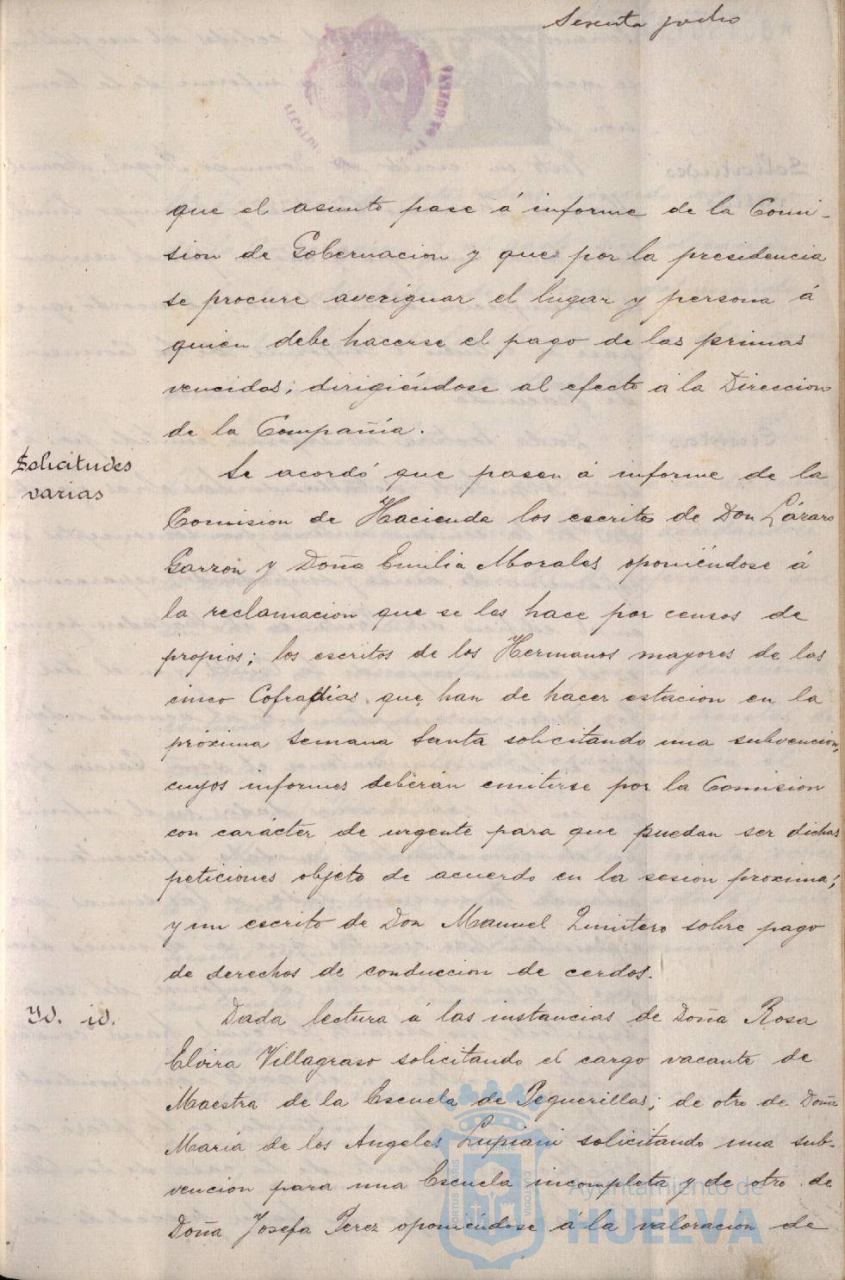 Sesenta y ocho
ALCALDIA DE HUELVA
que el asunto pase á informe de la Comi-
sion de Gobernacion y que por la presidencia
se procure averiguar el lugar y persona á
quien debe hacerse el pago de las primas
vencidas; dirigiéndose al efecto á la Direccion
de la Compañía.
Solicitudes
varias
Se acordó que pasen á informe de la
Comision de Hacienda los escritos de Don Lázaro
Garzón y Doña Emilia Morales oponiéndose á
la reclamacion que se les hace por censos de
propios; los escritos de los Hermanos mayores de las
cinco Cofradías que han de hacer estacion en la
próxima Semana Santa solicitando una subvencion,
cuyos informes deberán emitirse por la Comision
con carácter de urgente para que puedan ser dichas
peticiones objeto de acuerdo en la sesion proxima;
y un escrito de Don Manuel Quintero sobre pago
de derechos de conduccion de cerdos.
Id. id.
Dada lectura á las instancias de Doña Rosa
Elvira Villagraso solicitando el cargo vacante de
Maestra de la Escuela de Peguerillas; de otro de Doña
María de los Angeles Lupiani solicitando una sub-
vencion para una Escuela incompleta y de otro de
Doña Josefa Perez oponiéndose á la valoracion de
Ayuntamiento de
HUELVA